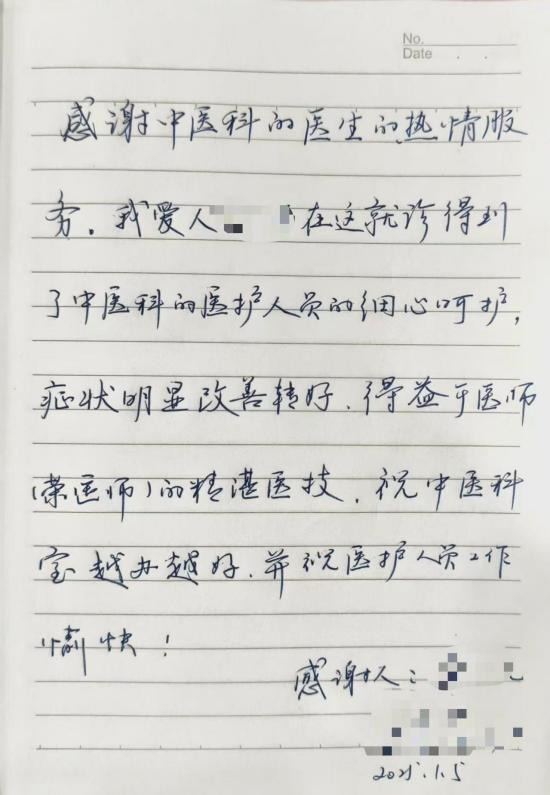 No.
Date . .
感谢中医科的医生的热情服
务。我爱人 在这就诊得到
了中医科的医护人员的细心呵护,
症状明显改善转好、得益于医师
(荣医师)的精湛医技、祝中医科
室越办越好、并祝医护人员工作
愉快!
感谢人:
2025.1.5